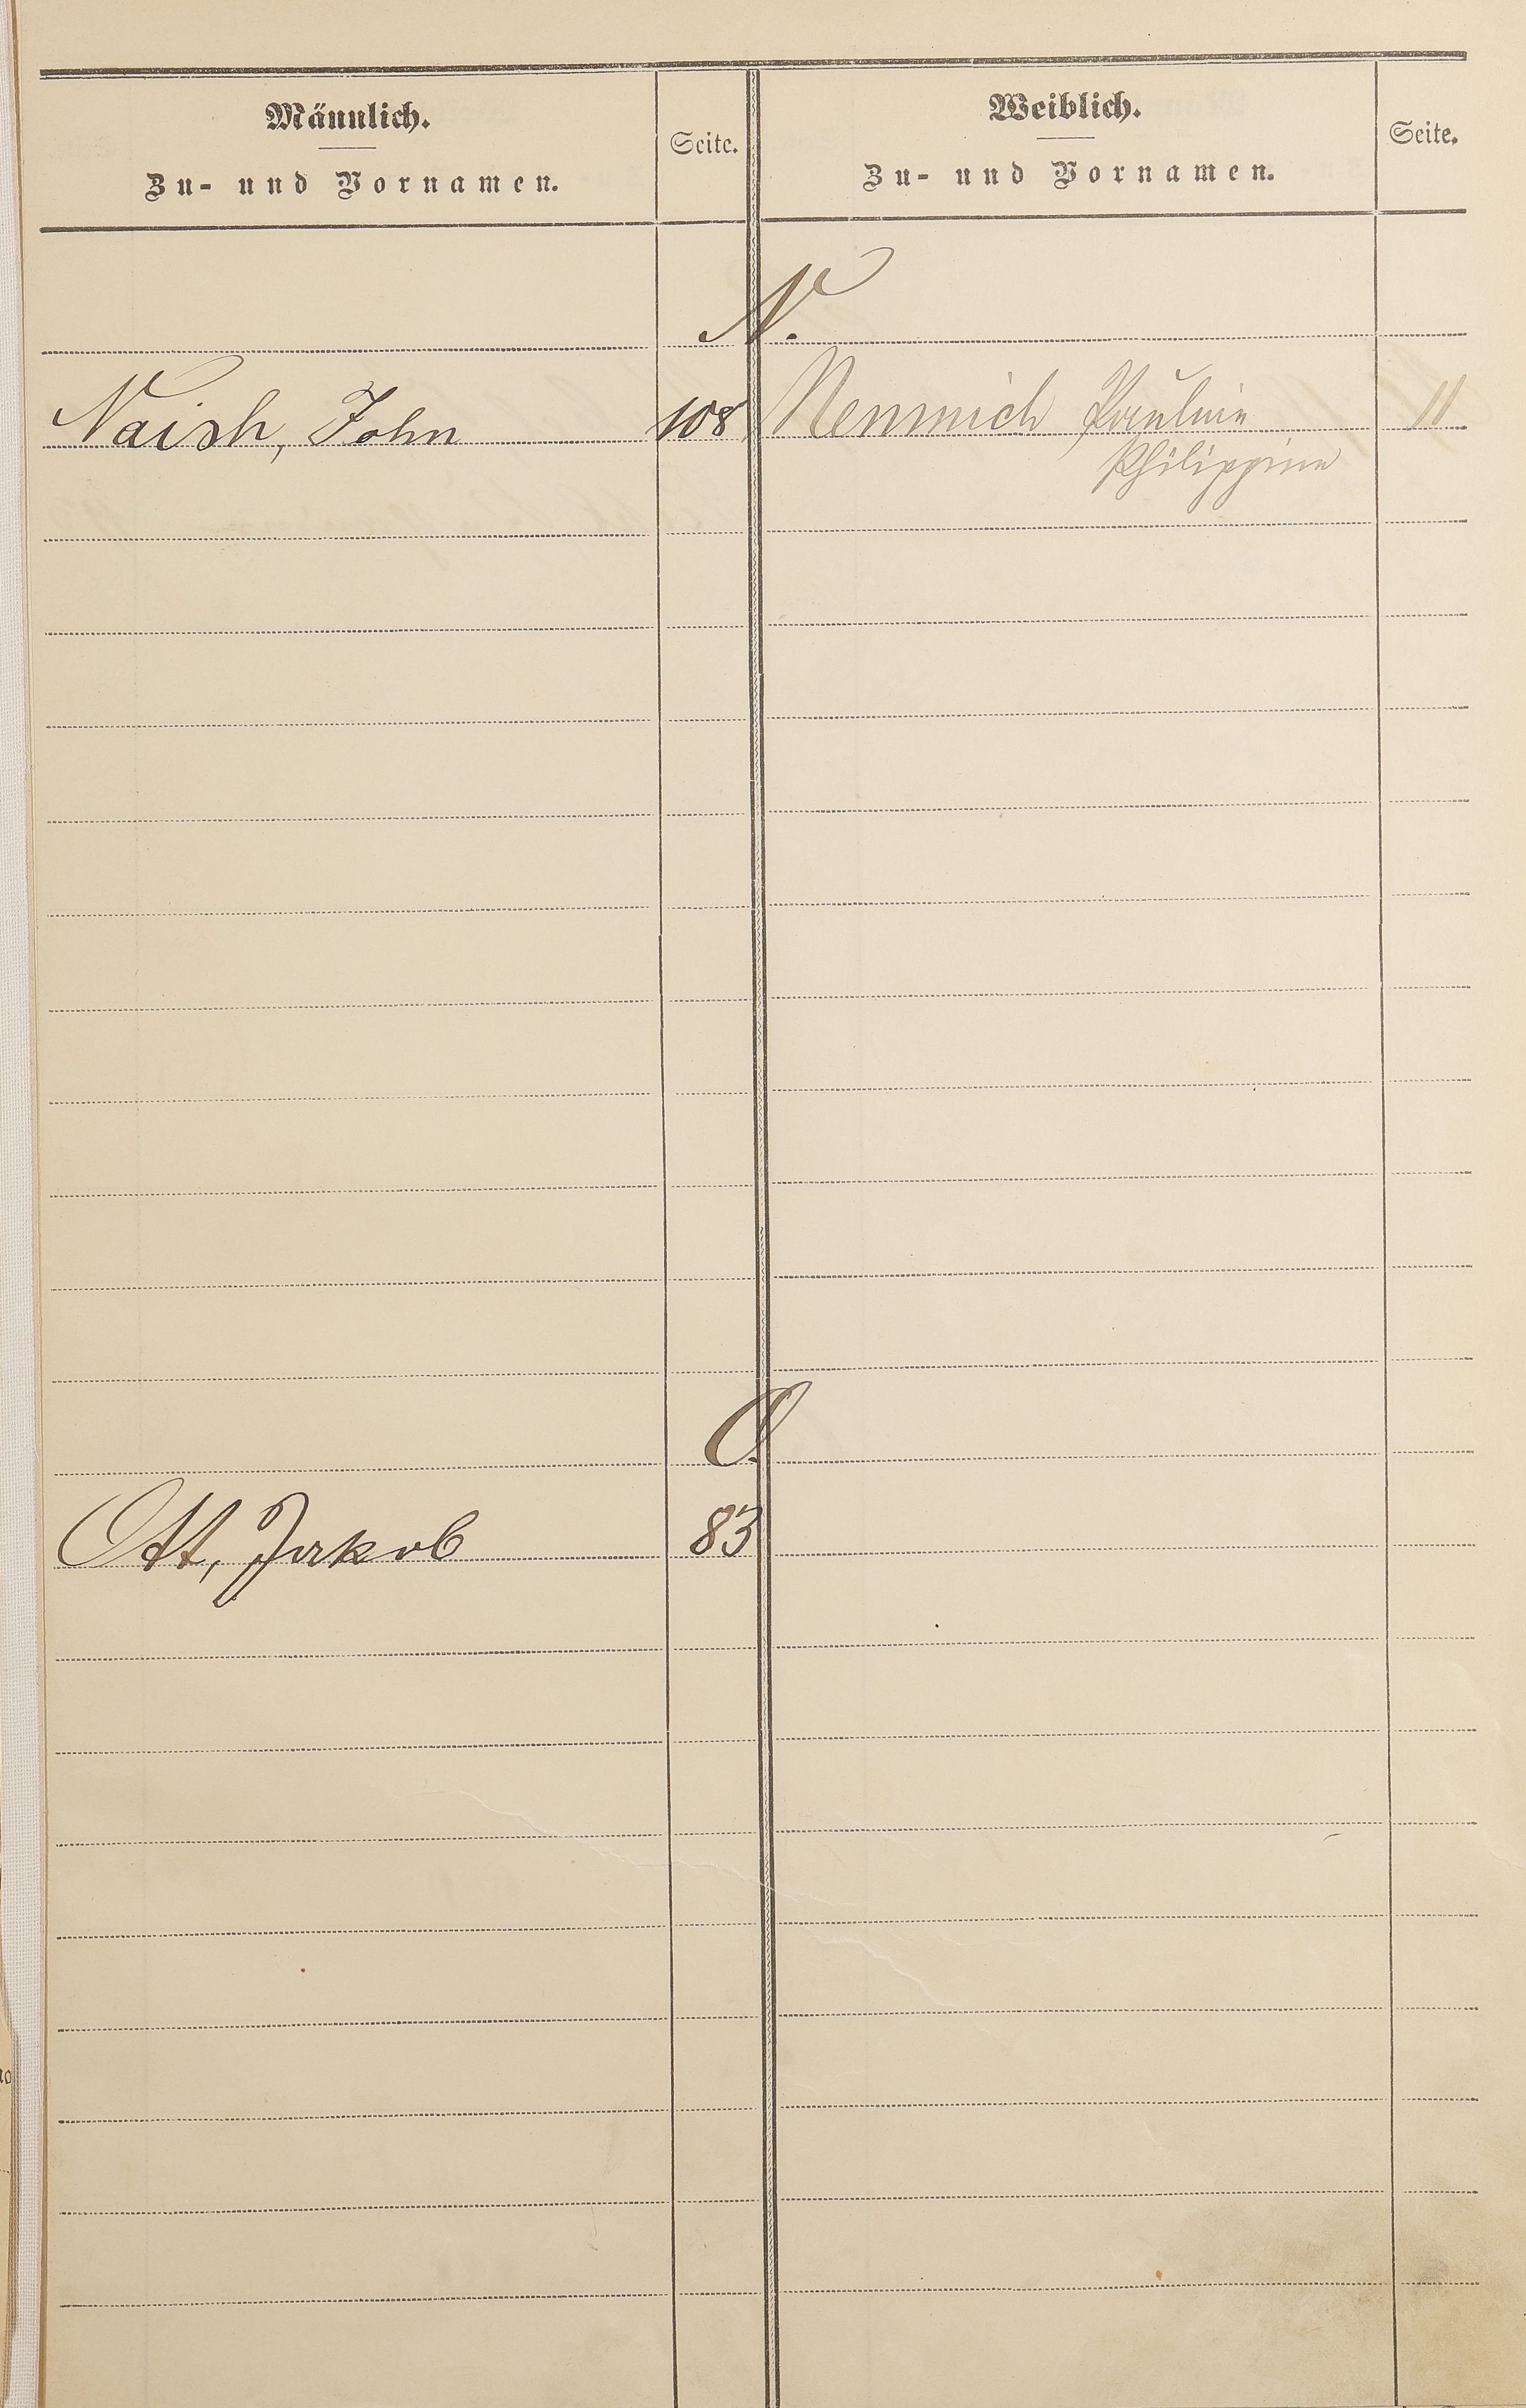 Männlich.
Zu- und Vornamen.
Seite.
Weiblich.
Zu- und Vornamen.
Seite.
N.
Naish, John 108
Nemnich Pauline 11
Philippine
O.
Ott, Jakob 83